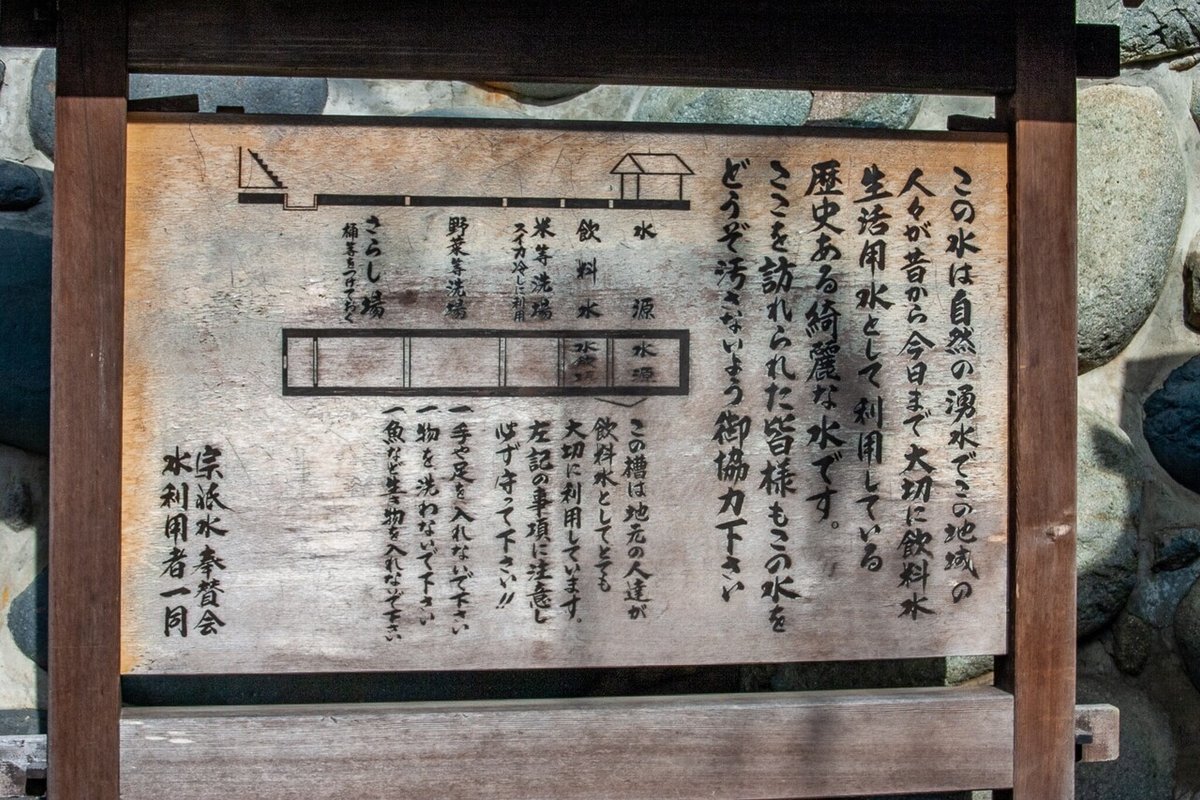 この水は自然の湧水でこの地域の
人々が昔から今日まで大切に飲料水
生活用水として利用している
歴史ある綺麗な水です。
ここを訪れられた皆様もこの水を
どうぞ汚さないよう御協力下さい
水源
飲料水
米等洗場
スイカ冷しに利用
野菜等洗場
さらし場
桶等をつけておく
水源
この槽は地元の人達が
飲料水としてとても
大切に利用しています。
左記の事項に注意し
必ず守って下さい!!
一手や足を入れないで下さい
一物を洗わないで下さい
一魚など生き物を入れないで下さい
宗祇水奉賛会
水利用者一同